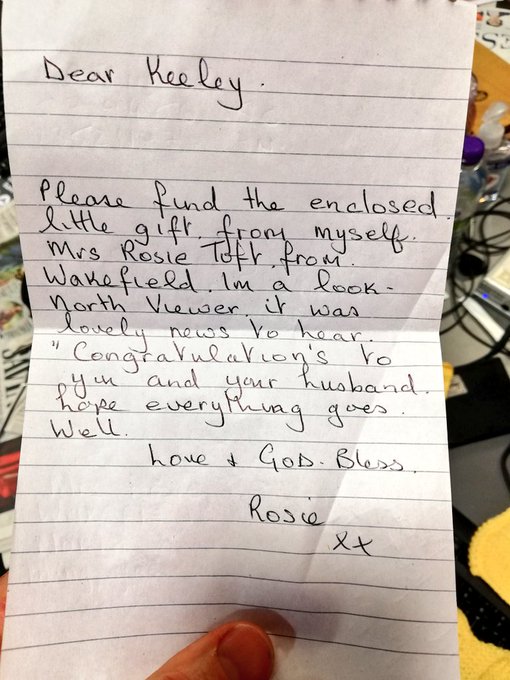 Dear Keeley.
Please find the enclosed.
little gift. from myself.
Mrs Rosie Toft. from.
Wakefield. Im a look-
north Viewer. it was
lovely news to hear.
"Congratulation's to
you and your husband.
hope everything goes.
Well.
Love & God. Bless.
Rosie
xx